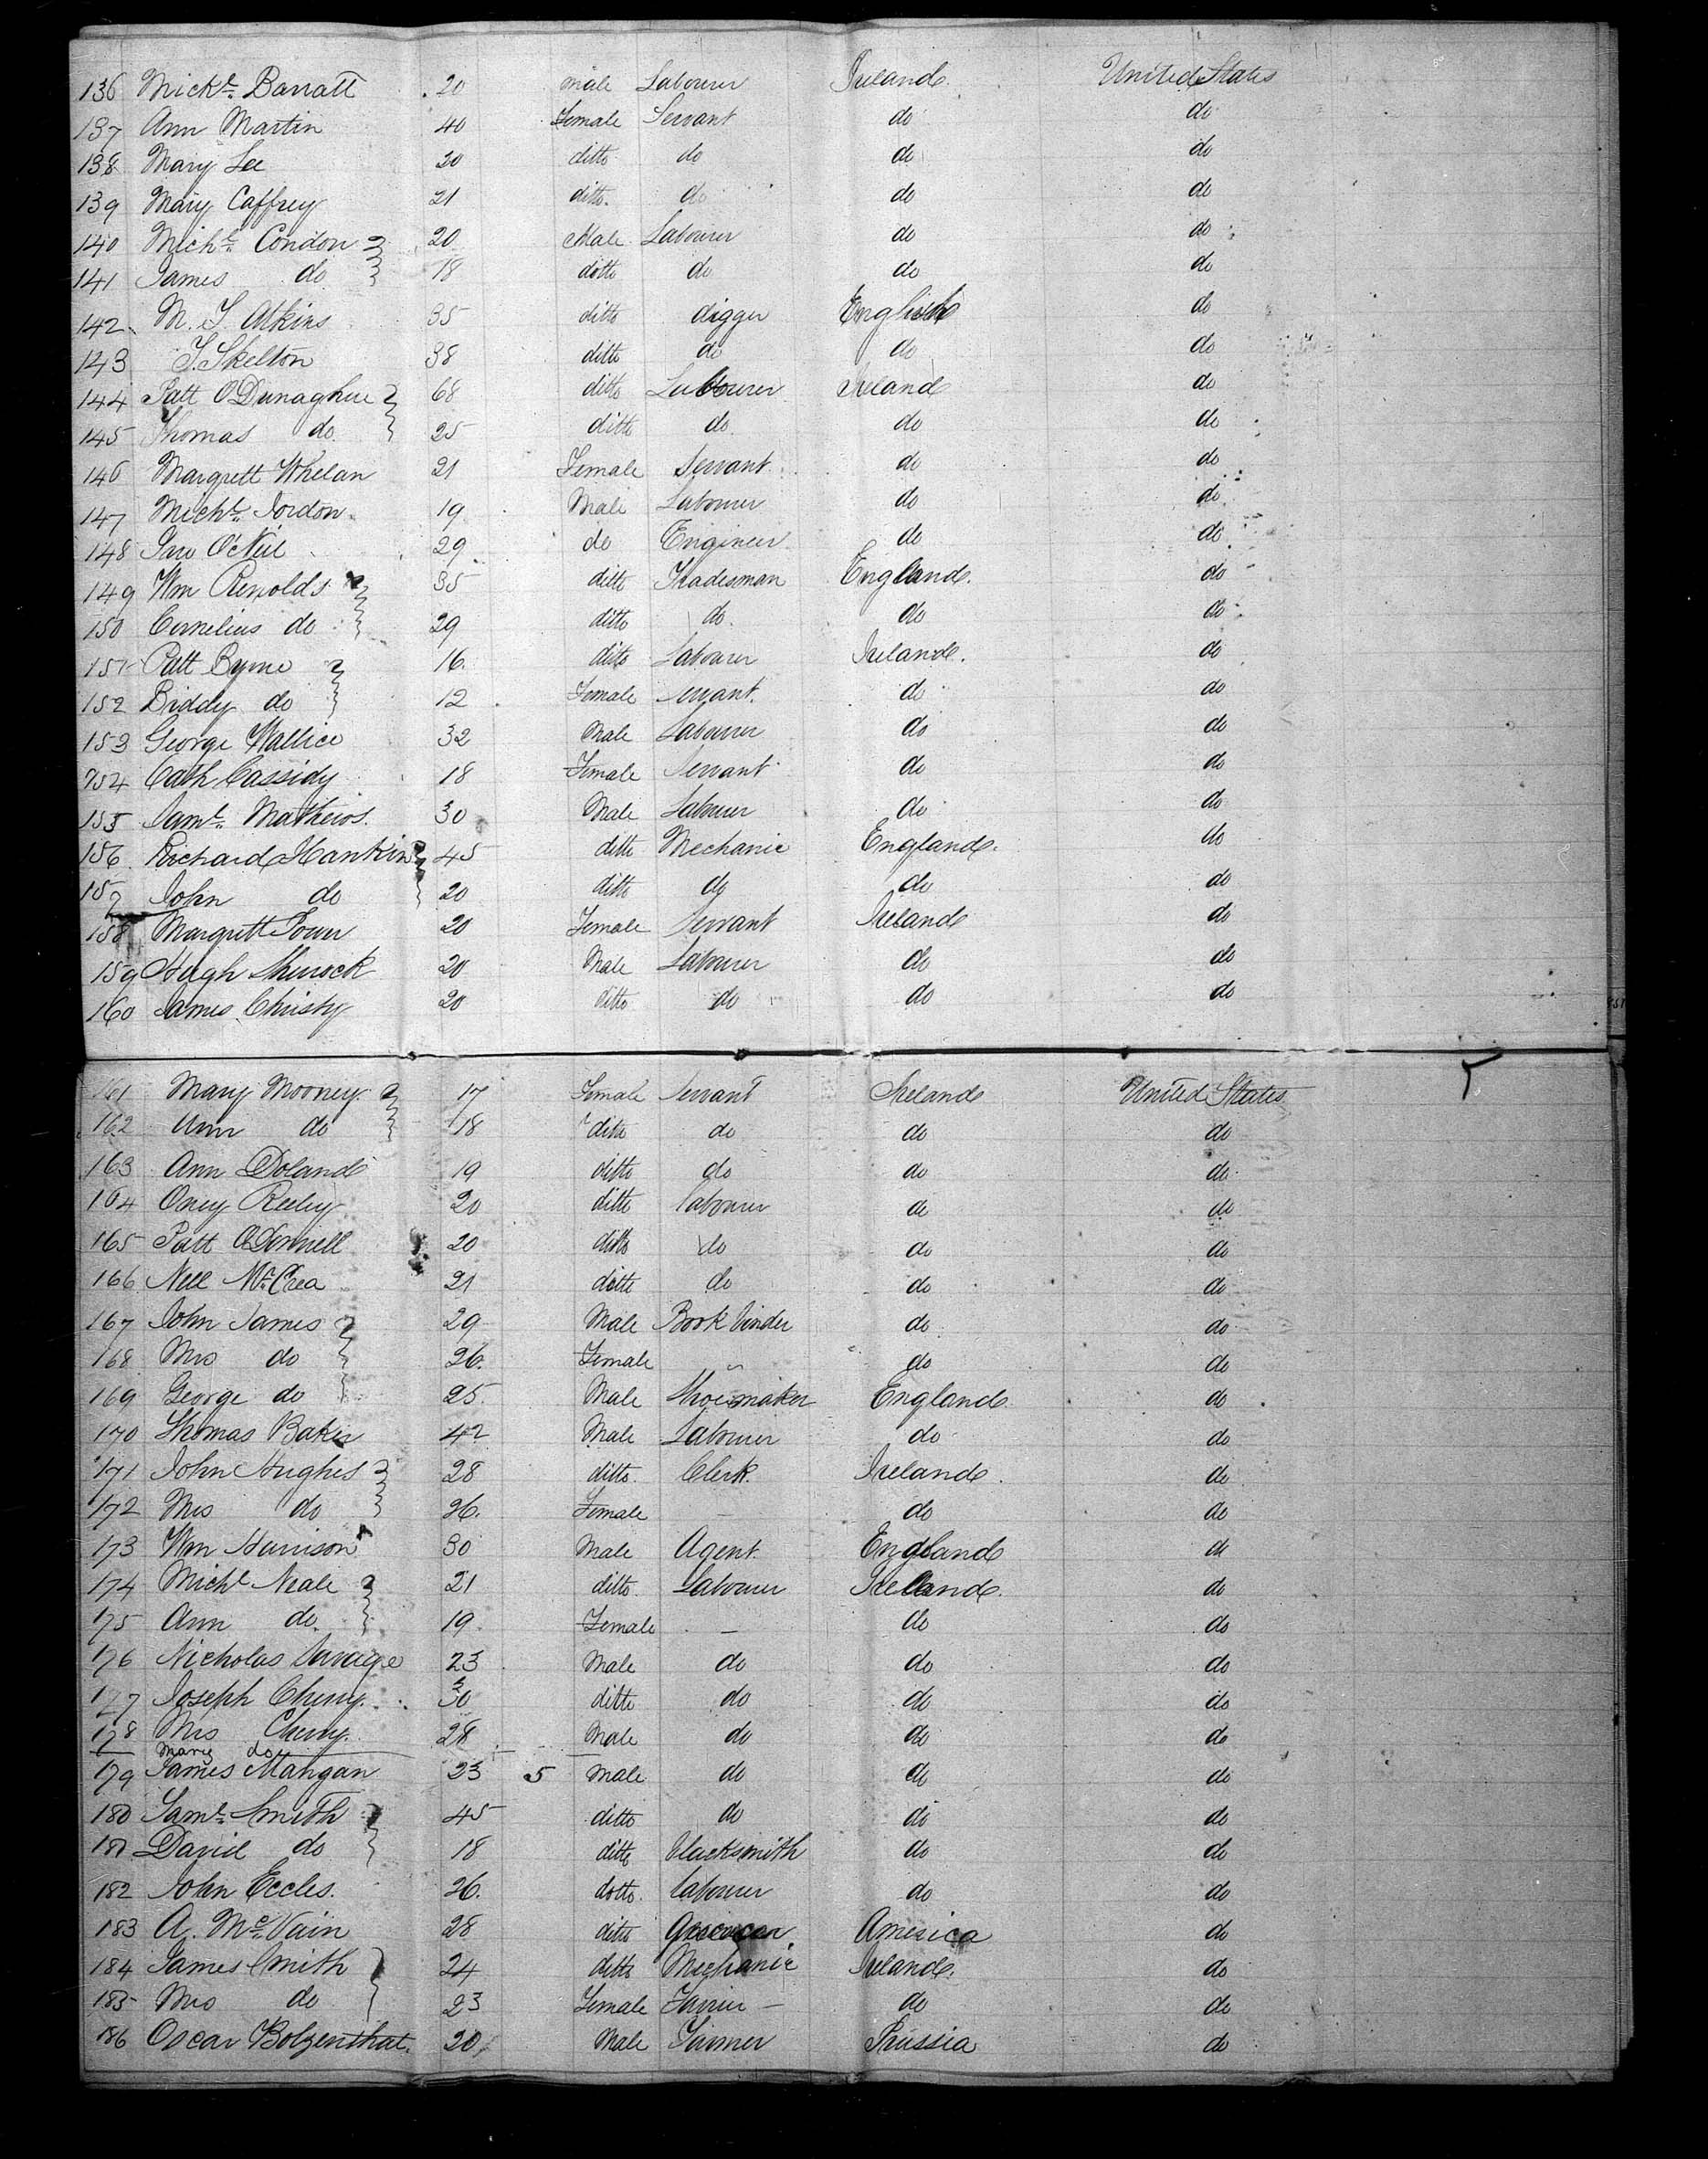 136 Mickl. Barratt 20 male Labourer Ireland United States
137 Ann Martin 40 Female Servant do do
138 Mary Lee 20 ditto do do do
139 Mary Caffrey 21 ditto do do do
140 Michl. Condon 20 Male Labourer do do
141 James do 18 ditto do do do
142 M. J. Atkins 35 ditto digger English do
143 J. Skelton 38 ditto do do do
144 Patt O'Dunaghue 68 ditto Labourer Ireland do
145 Thomas do 25 ditto do do do
146 Margrett Whelan 21 Female Servant do do
147 Michl. Jordon 19 Male Labourer do do
148 O'Neil 29 do Engineer do do
149 Wm Renolds 35 ditto Tradesman England do
150 Cornelius do 29 ditto do do do
151 Patt Byrne 16 ditto Labourer Ireland do
152 Biddy do 12 Female Servant do do
153 George Wallice 32 Male Labourer do do
154 Cath Cassidy 18 Female Servant do do
155 Saml. Mathews 30 Male Labourer do do
156 Richard Hankins 45 ditto Mechanic England do
157 John do 20 ditto do do do
158 Margrett Power 20 Female Servant Ireland do
159 Hugh 20 Male Labourer do do
160 James Christy 20 ditto do do do
161 Mary Mooney 17 Female Servant Ireland United States
162 Ann do 18 ditto do do do
163 Ann Doland 19 ditto do do do
164 Oney Reeley 20 ditto labourer do do
165 Patt O'Donnell 20 ditto do do do
166 Nell McCrea 21 ditto do do do
167 John James 29 Male Book binder do do
168 Mrs do 26 Female do do
169 George do 25 Male Shoemaker England do
170 Thomas Baker 42 Male Labourer do do
171 John Hughes 28 ditto Clerk Ireland do
172 Mrs do 26 Female do do
173 Wm Harrison 30 Male Agent England do
174 Michl Neale 21 ditto Labourer Ireland do
175 Ann do 19 Female — do do
176 Nicholas Savage 23 Male do do do
177 Joseph Cherry 30 ditto do do do
178 Mrs Cherry 28 Male do do do
Mary do
179 James Mangan 23 5 male do do do
180 Saml. Smith 45 ditto do do do
181 David do 18 ditto blacksmith do do
182 John Eccles 26 ditto labourer do do
183 A. McVain 28 ditto America do
184 James Smith 24 ditto Mechanic Ireland do
185 Mrs do 23 Female do do
186 Oscar Bolzenthal 20 Male Farmer Prussia do